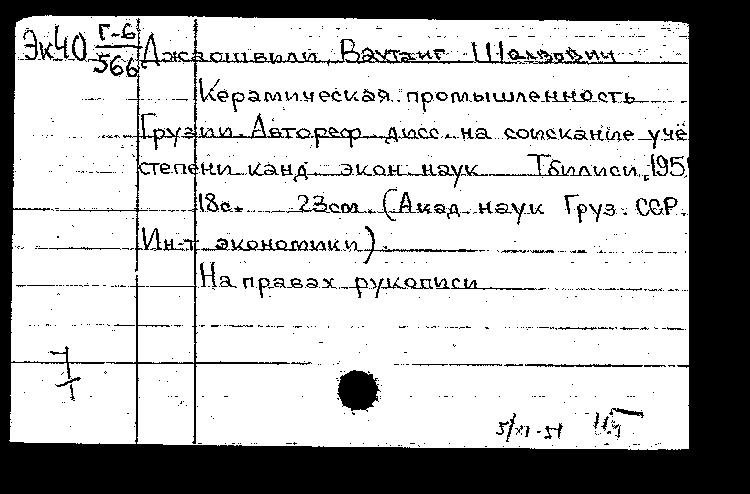 Эк40 Г-6 Джаошвили, Вахтанг Шалвович
566
Керамическая промышленность
Грузии. Автореф. дисс. на соискание учё
степени канд. экон. наук Тбилиси, 195
18с. 23см. (Акад. наук Груз. ССР.
Ин-т экономики).
На правах рукописи
5/XI-51